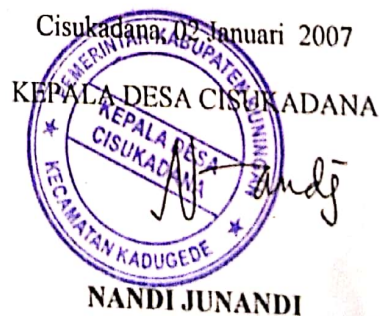 Cisukadana, 02 Januari 2007
KEPALA DESA CISUKADANA
PEMERINTAH KABUPATEN KUNINGAN
KEPALA DESA
CISUKADANA
KECAMATAN KADUGEDE
Nandj
NANDI JUNANDI